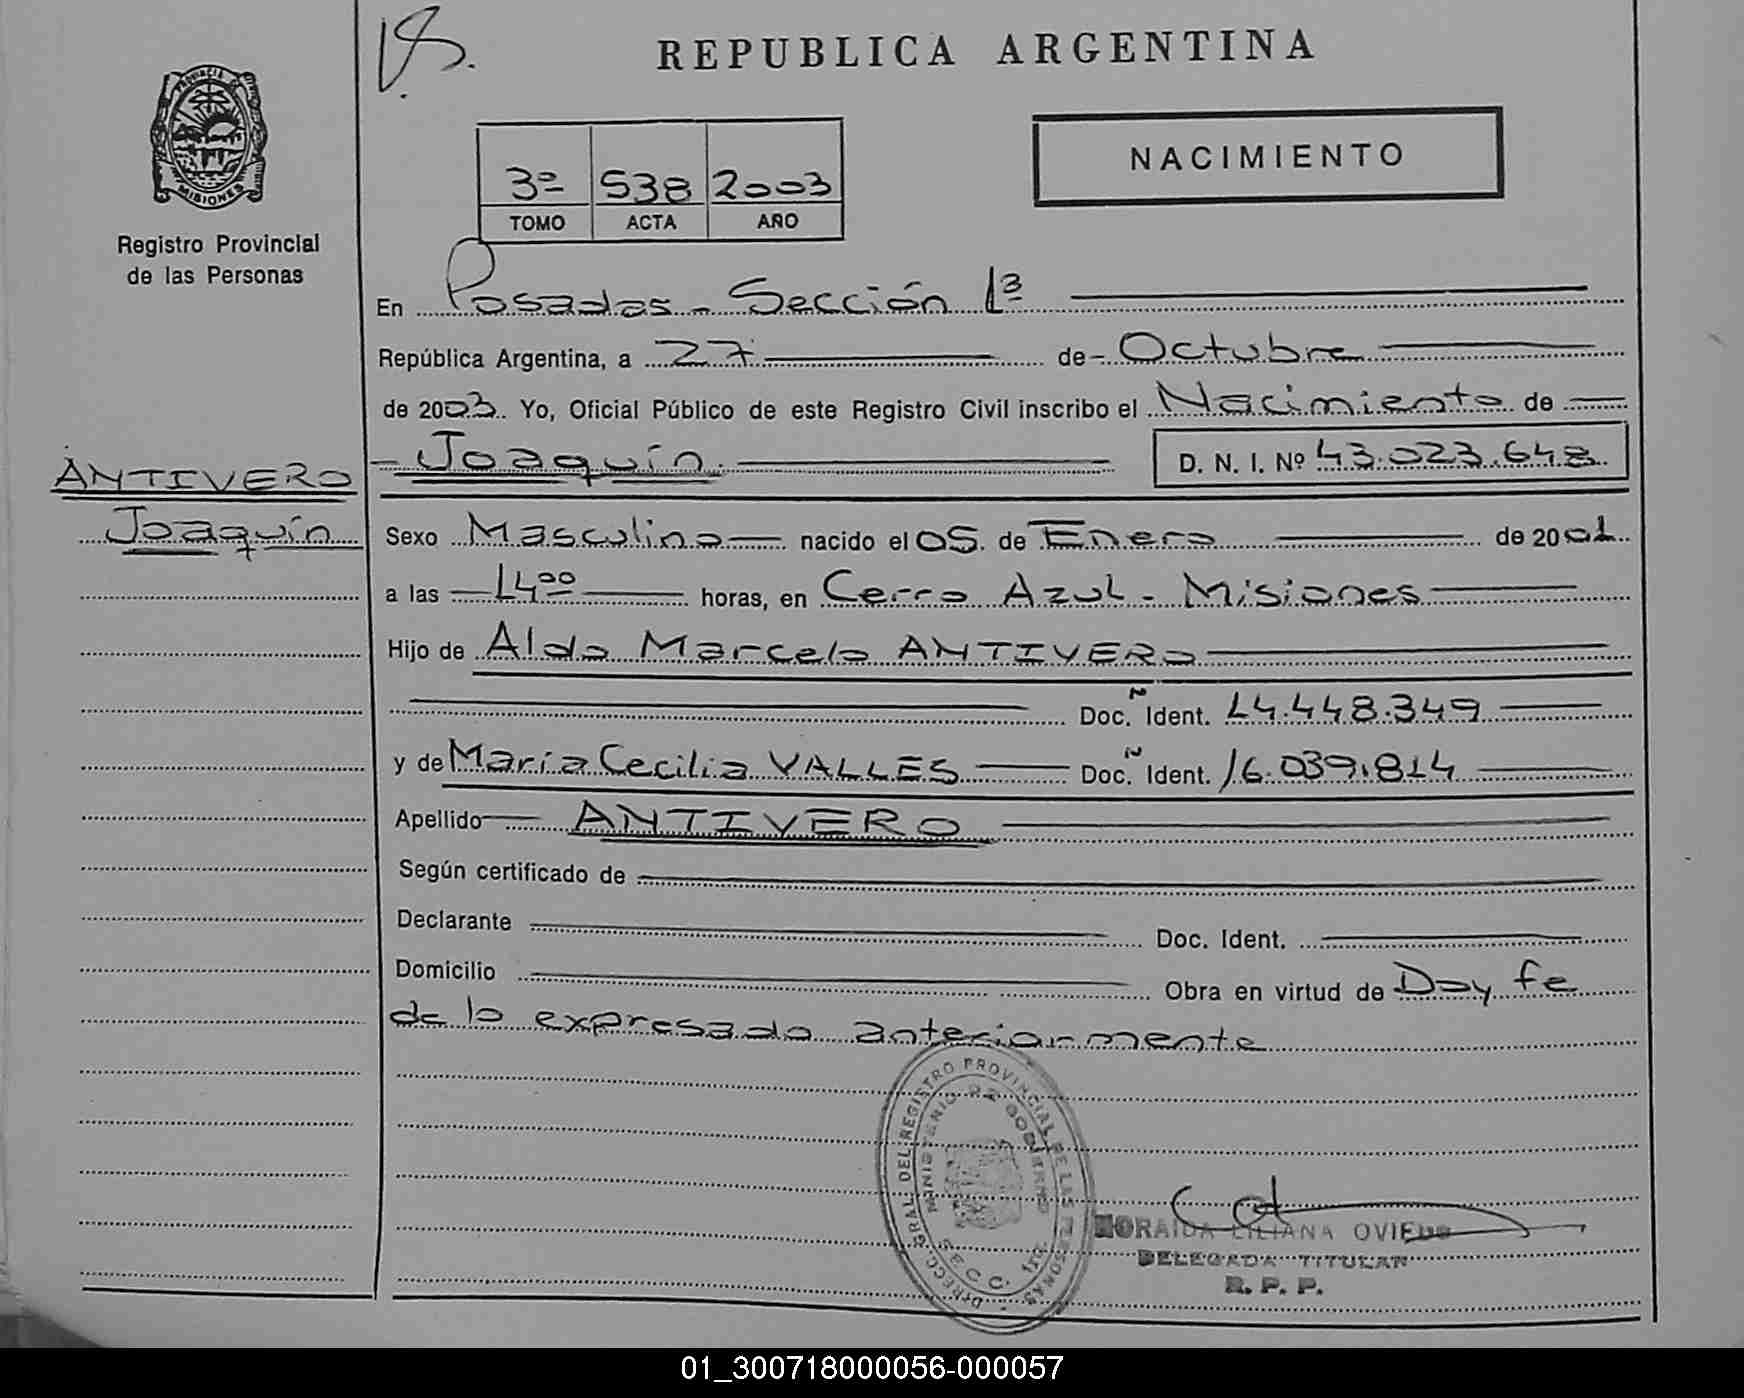 REPUBLICA ARGENTINA
PROVINCIA DE
MISIONES
Registro Provincial
de las Personas
3º 538 2003
TOMO ACTA AÑO
NACIMIENTO
En Posadas - Sección 1ª
República Argentina, a 27 de Octubre
de 2003. Yo, Oficial Público de este Registro Civil inscribo el Nacimiento de
ANTIVERO
Joaquín
Joaquín. D. N. I. Nº 43.023.648
Sexo Masculino nacido el 05. de Enero de 2001
a las 14⁰⁰ horas, en Cerro Azul - Misiones
Hijo de Aldo Marcelo ANTIVERO
Doc. Ident. 14.448.349
y de María Cecilia VALLES Doc. Ident. 16.039.814
Apellido ANTIVERO
Según certificado de
Declarante Doc. Ident.
Domicilio Obra en virtud de Doy fe
de lo expresado anteriormente
DIRECC. GRAL. DEL REGISTRO PROVINCIAL DE LAS PERSONAS
MINISTERIO DE GOBIERNO
SECC. 1ra.
LILIANA OVIEDO
DELEGADA TITULAR
R. P. P.
01_300718000056-000057